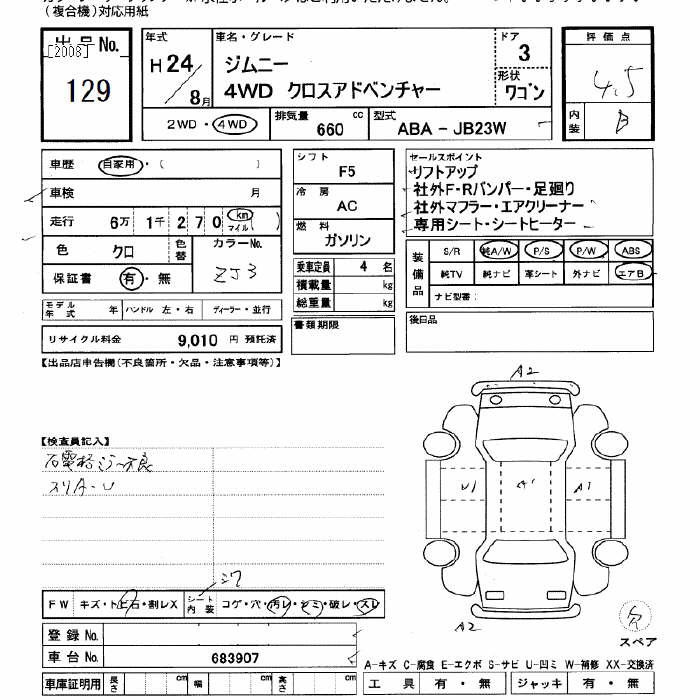 (複合機)対応用紙
出品No.
[2008]
129
年式
H24/8月
車名・グレード
ジムニー
4WD クロスアドベンチャー
ドア
3
形状
ワゴン
2WD・4WD
排気量 660 cc
型式 ABA - JB23W
評価点
4.5
内装 B
車歴 自家用・( )
車検 月
走行 6万 1千 270 (km マイル)
色 クロ 色替 カラーNo.
保証書 有・無 ZJ3
モデル年式 年 ハンドル 左・右 ディーラー・並行
リサイクル料金 9,010 円 預託済
シフト F5
冷房 AC
燃料 ガソリン
乗車定員 4 名
積載量 kg
総重量 kg
書類期限
セールスポイント
リフトアップ
社外F・Rバンパー・足廻り
社外マフラー・エアクリーナー
専用シート・シートヒーター
装備品
S/R 純A/W P/S P/W ABS
純TV 純ナビ 革シート 外ナビ エアB
ナビ型番:
後日品
【出品店申告欄(不良箇所・欠品・注意事項等)】
【検査員記入】
右電格ミラー不良
スリA-U
A2
U1
A1
A1
A2
シワ
FW キズ・ト上石・割レX
シート内装 コゲ・穴・汚レ・シミ・破レ・スレ
登録No.
車台No. 683907
車庫証明用 長さ cm 幅 cm 高さ cm
スペア
A-キズ C-腐食 E-エクボ S-サビ U-凹ミ W-補修 XX-交換済
工具 有・無 ジャッキ 有・無